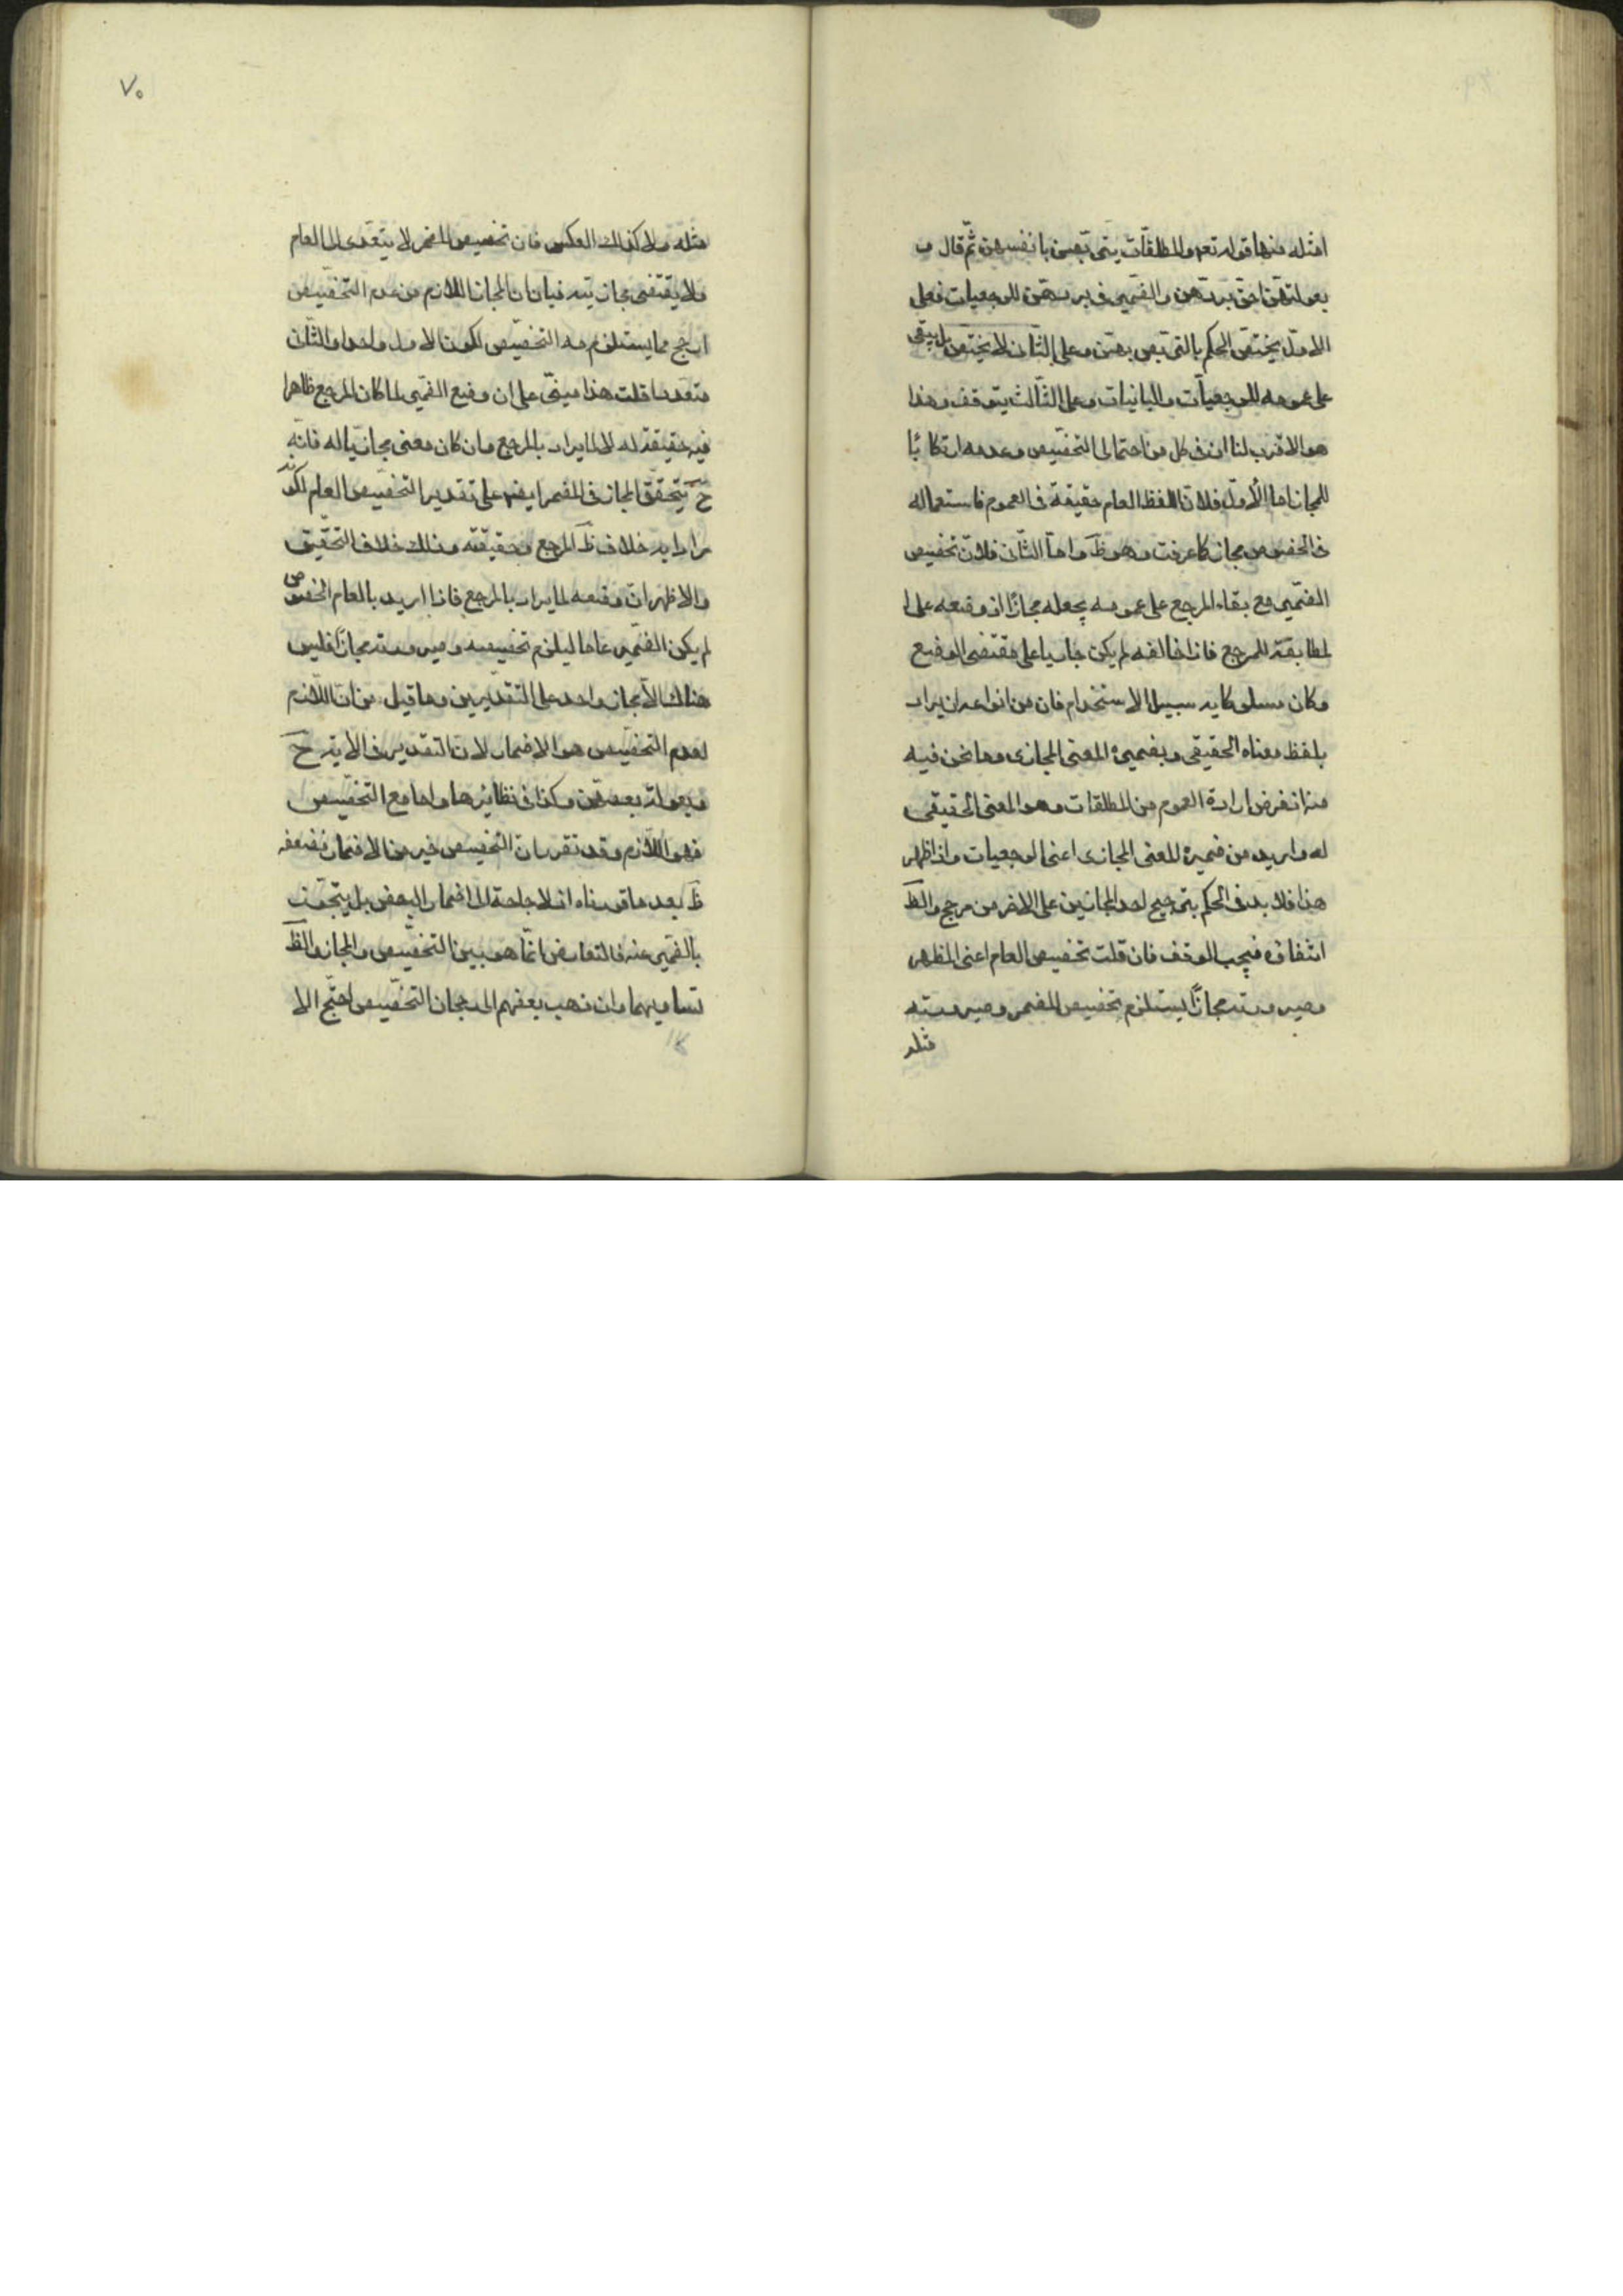 امثله منها قوله تعه والمطلقات يتربصن بانفسهن ثم قال و
بعولتهن احق بردهن والضمير فى بردهن للرجعيات فعلى
الاول يختص الحكم بالتربص بهن وعلى الثانى لا يختص بل يبقى
على عمومه للرجعيات والباينات وعلى الثالث يتوقف وهذا
هو الاقرب لنا ان فى كل من احتمالى التخصيص وعدمه ارتكابا
للمجاز اما الاول فلان اللفظ العام حقيقة فى العموم فاستعماله
فى الخصوص مجاز كما عرفت وهو ظ واما الثانى فلان تخصيص
الضمير مع بقاء المرجع على عمومه يجعله مجازا اذ وضعه على ا
لمطابقة للمرجع فاذا خالفه لم يكن جاريا على مقتضى الوضع
وكان مسلوكا به سبيل الاستخدام فان من انواعه ان يراد
بلفظ معناه الحقيقى وبضميره المعنى المجازى وما نحن فيه
منه اذ نفرض ارادة العموم من المطلقات وهو المعنى الحقيقى
له واريد من ضميره المعنى المجازى اعنى الرجعيات واذ اظهر
هذا فلا بد فى الحكم بترجيح احد المجازين على الاخر من مرجح والظ
انتفاؤه فيجب الوقف فان قلت تخصيص العام اعنى المظهر
وصيرورته مجازا يستلزم تخصيص المضمر وصيرورته
مثله
٧٠
مثله ولا كذلك العكس فان تخصيص المضمر لا يتعدى الى العام
ولا يقتضى مجازيته فبان ان المجاز اللازم من عدم التخصيص
ارجح مما يستلزمه التخصيص لكون الاول واحدا والثانى
متعددا قلت هذا مبنى على ان وضع الضمير لما كان المرجع ظاهرا
فيه حقيقة له لا لما يراد بالمرجع وان كان معنى مجازيا له فانه
ح يتحقق المجاز فى المضمر ايضا على تقدير التخصيص العام لكونه
مرادا به خلاف ظ المرجع وحقيقته وذلك خلاف التحقيق
والاظهر ان وضعه لما يراد بالمرجع فاذا اريد بالعام الخصوص
لم يكن الضمير عاما ليلزم تخصيصه وصيرورته مجازا فليس
هناك الا مجاز واحد على التقديرين وما قيل من ان اللازم
لعدم التخصيص هو الاضمار لان التقدير فى الاية ح
وبعولة بعضهن وكذا فى نظائرها واما مع التخصيص
فهو اللازم وقد تقرر ان التخصيص خير من الاضمار فضعفه
ظ بعد ما قررناه اذ لا حاجة الى اضمار البعض بل يتجوز
بالضمير عنه فالتعارض انما هو بين التخصيص والمجاز والظ
تساويهما وان ذهب بعضهم الى رجحان التخصيص احتج الا